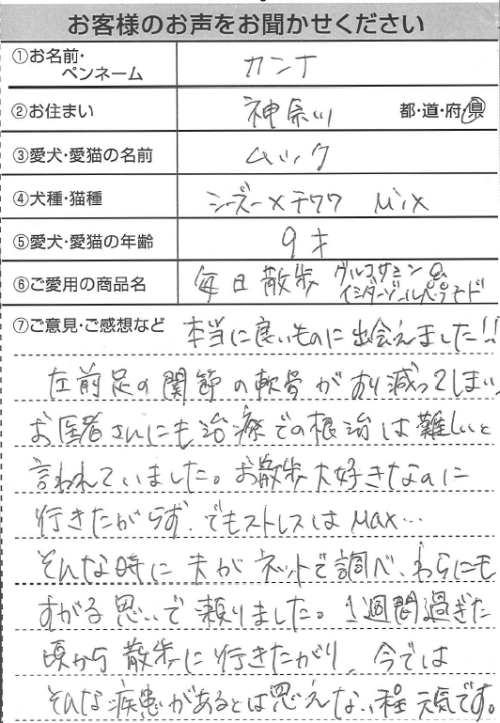 お客様のお声をお聞かせください
①お名前・ペンネーム カンナ
②お住まい 神奈川 都・道・府・県
③愛犬・愛猫の名前 ムック
④犬種・猫種 シーズー×チワワ Mix
⑤愛犬・愛猫の年齢 9才
⑥ご愛用の商品名 毎日散歩 グルコサミン&
イミダゾールペプチド
⑦ご意見・ご感想など 本当に良いものに出会えました!!
左前足の関節の軟骨がすり減ってしまい、
お医者さんにも治療での根治は難しいと
言われていました。お散歩大好きなのに
行きたがらず、でもストレスはMax…
そんな時に夫がネットで調べ、わらにも
すがる思いで頼りました。1週間過ぎた
頃から散歩に行きたがり、今では
そんな疾患があるとは思えない程元気です。